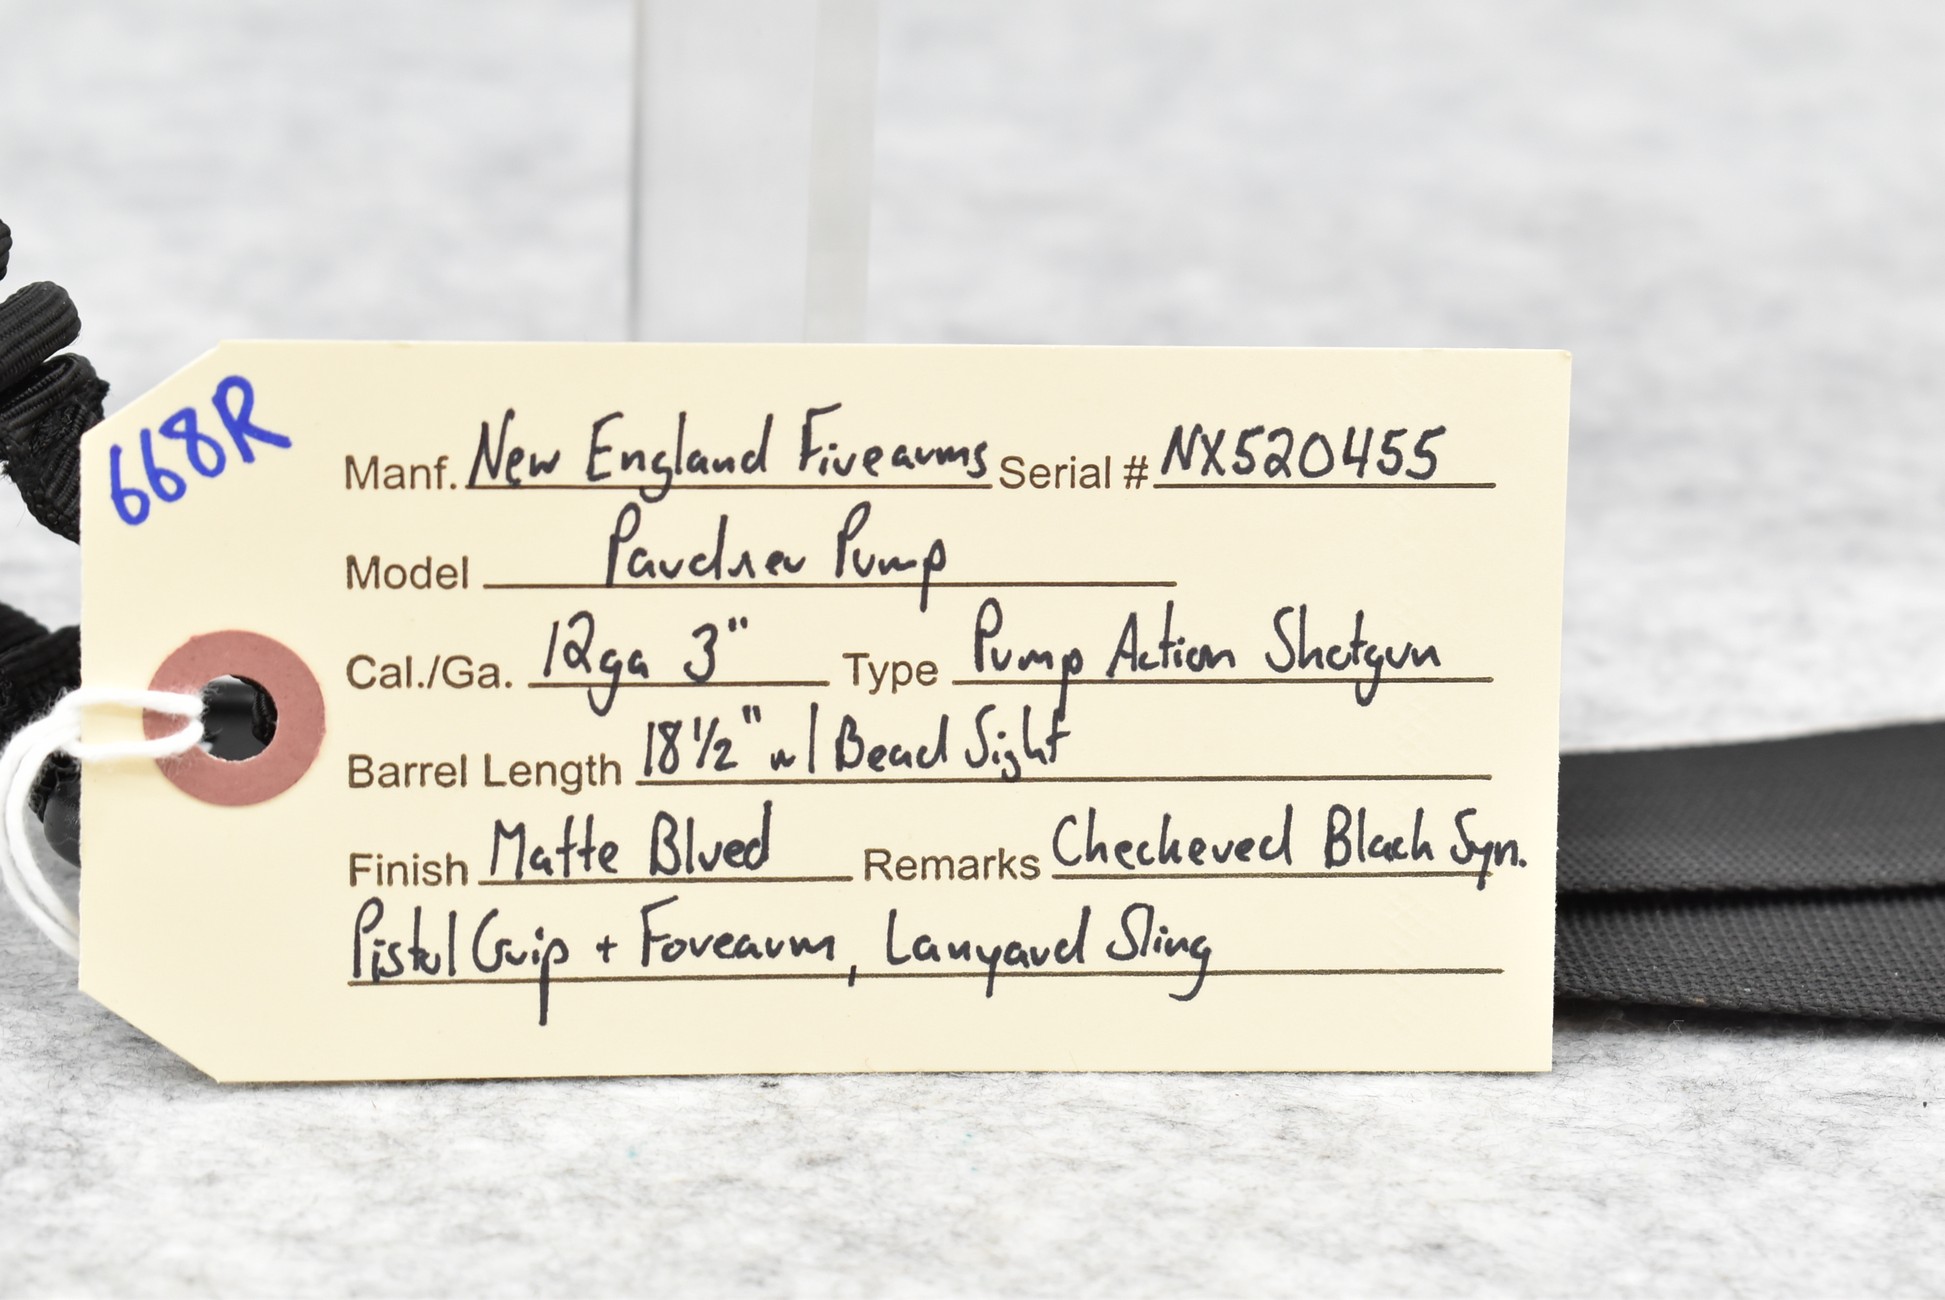 668R
Manf. New England Firearms Serial # NX520455
Model Pardner Pump
Cal./Ga. 12ga 3" Type Pump Action Shotgun
Barrel Length 18 1/2" w/ Bead Sight
Finish Matte Blued Remarks Checkered Black Syn.
Pistol Grip + Forearm, Lanyard Sling